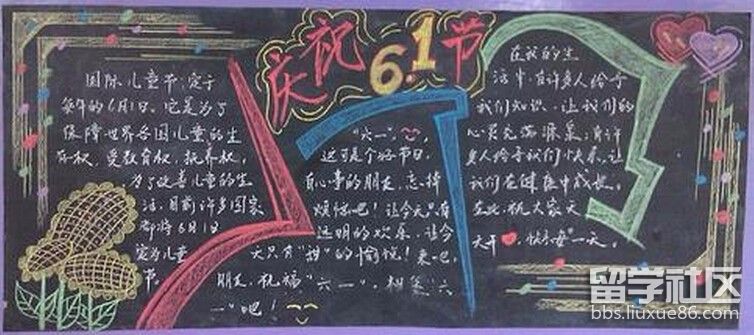 庆祝6.1节
国际儿童节,定于
每年的6月1日。它是为了
保障世界各国儿童的生
存权、受教育权、抚养权,
为了改善儿童的生
活,目前许多国家
都将6月1日
定为儿童
节。
"六一",
这可是个好节日,
有心事的朋友,忘掉
烦恼吧!让今天只有
透明的欢乐,让今
天只有"甜"的愉悦!来吧,
朋友,祝福"六一",相聚"六
一"吧!
在我的生
活中有许多人给予
我们知识,让我们的
心灵充满
多人给予我们快乐,让
我们在健康中成长。
在此,祝大家天
天开 快乐每一天。
留学社区
bbs.liuxue86.com